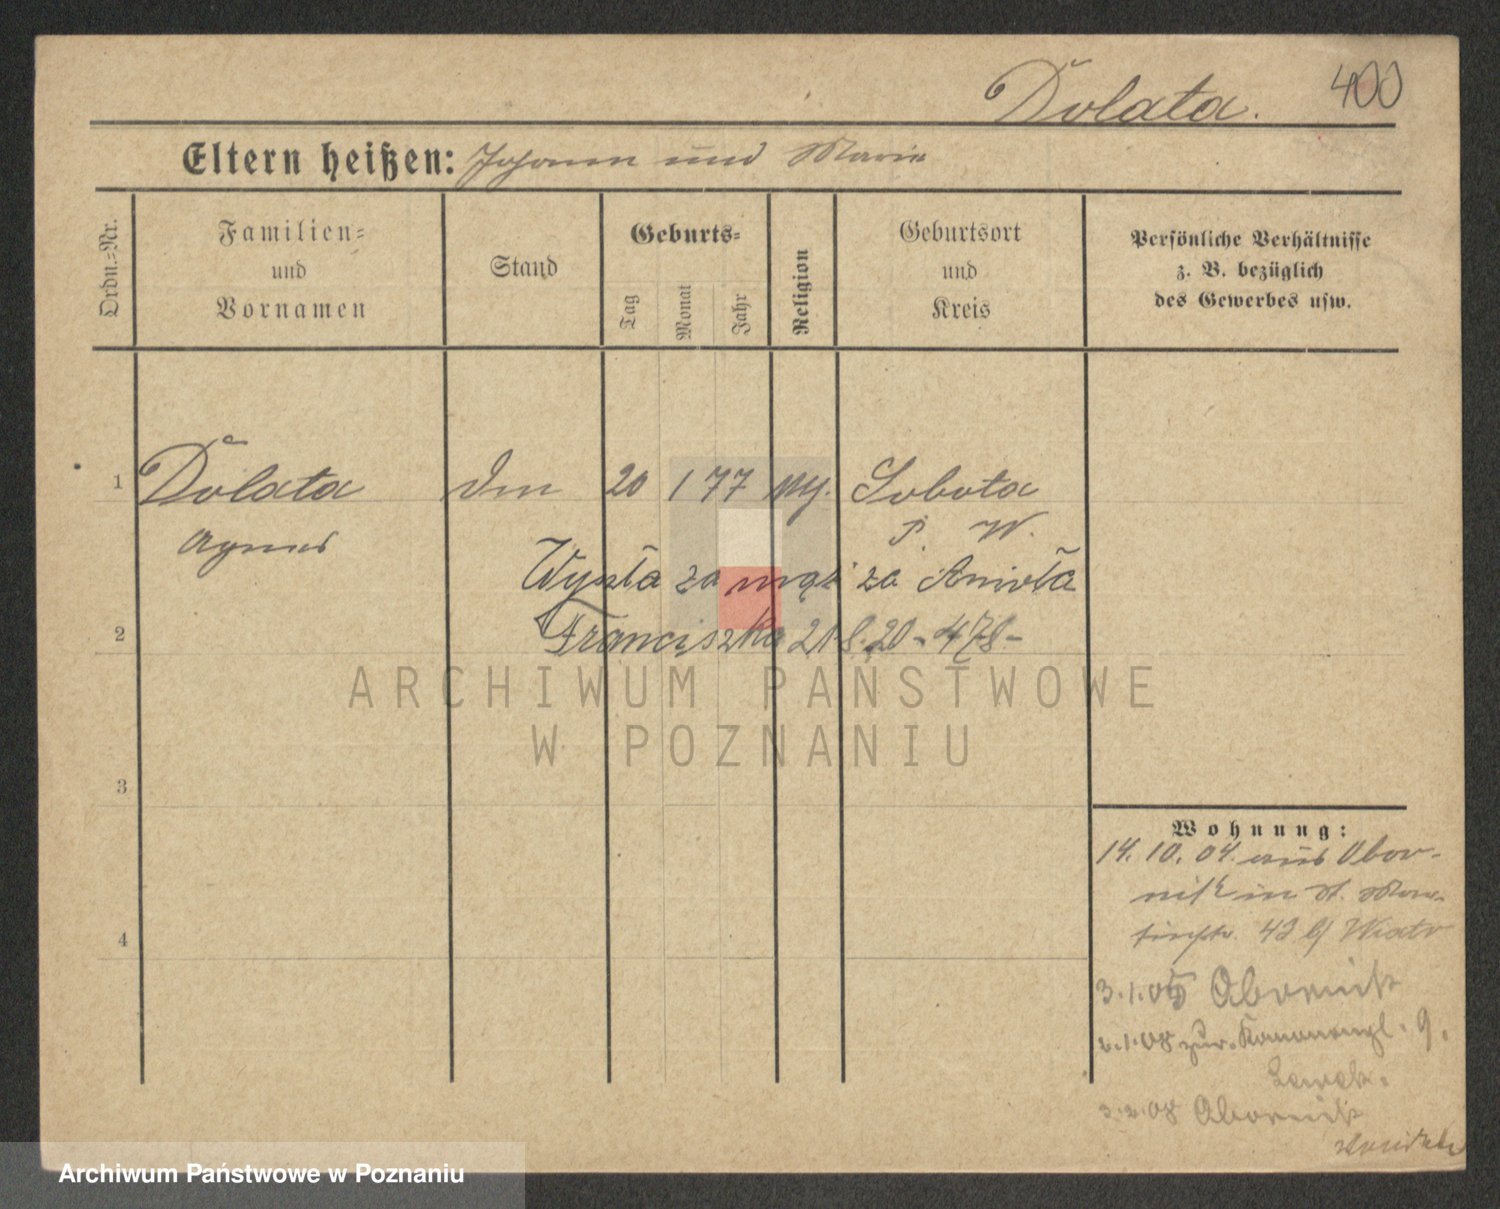 Dolata. 400
Eltern heißen: Johann und Marie
Ordn.=Nr.
Familien=
und
Vornamen
Stand
Geburts=
Tag
Monat
Jahr
Religion
Geburtsort
und
Kreis
Persönliche Verhältnisse
z. B. bezüglich
des Gewerbes usw.
1 Dolata 20 1 77 Sobota
Agnes P. W.
Wyszła za mąż za Anioła
2 Franciszka 21.8.20 - 478 -
ARCHIWUM PAŃSTWOWE
W POZNANIU
3
Wohnung:
14. 10. 04. aus Obor-
nik in St. Mar-
tinstr. 43 b/ Wiatr
4
3.1.05 Obornik
2.1.08 zur. 9.
3.2.08 Obornik
Archiwum Państwowe w Poznaniu